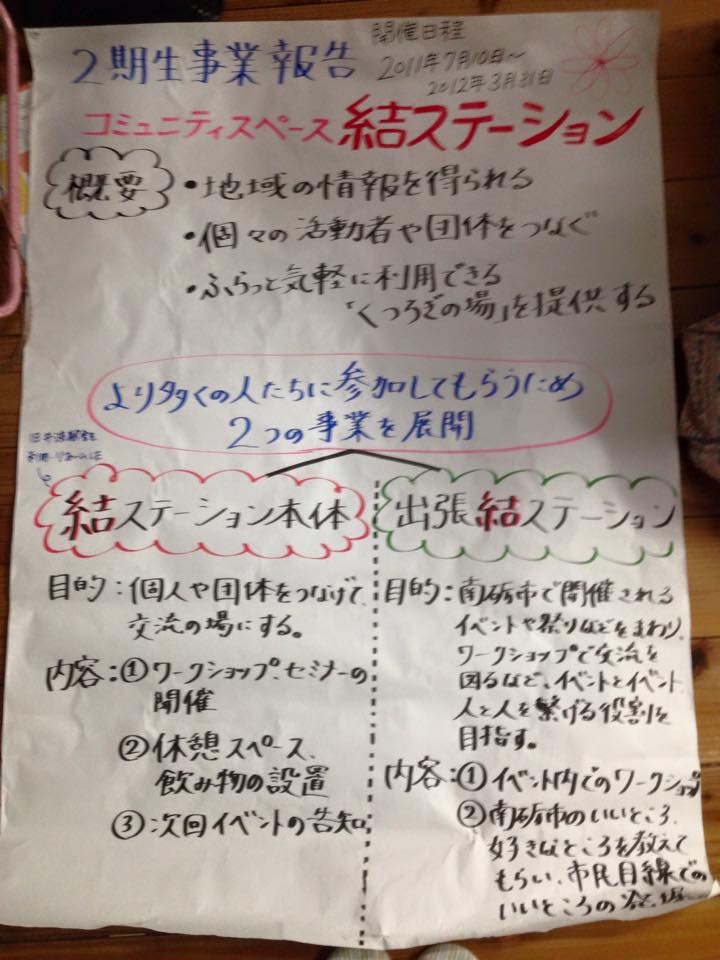 2期生事業報告
開催日程
2011年7月10日〜
2012年3月31日
コミュニティスペース 結ステーション
概要
・地域の情報を得られる
・個々の活動者や団体をつなぐ
・ふらっと気軽に利用できる
「くつろぎの場」を提供する
より多くの人たちに参加してもらうため
2つの事業を展開
結ステーション本体
目的：個人や団体をつなげて、
交流の場にする。
内容：①ワークショップ、セミナーの
開催
②休憩スペース、
飲み物の設置
③次回イベントの告知
出張結ステーション
目的：南砺市で開催される
イベントや祭りなどをまわり、
ワークショップで交流を
図るなど、イベントとイベント、
人と人を繋げる役割を
目指す。
内容：①イベント内でのワークショップ
②南砺市のいいところ、
好きなところを教えて
もらい、市民目線での
いいところの